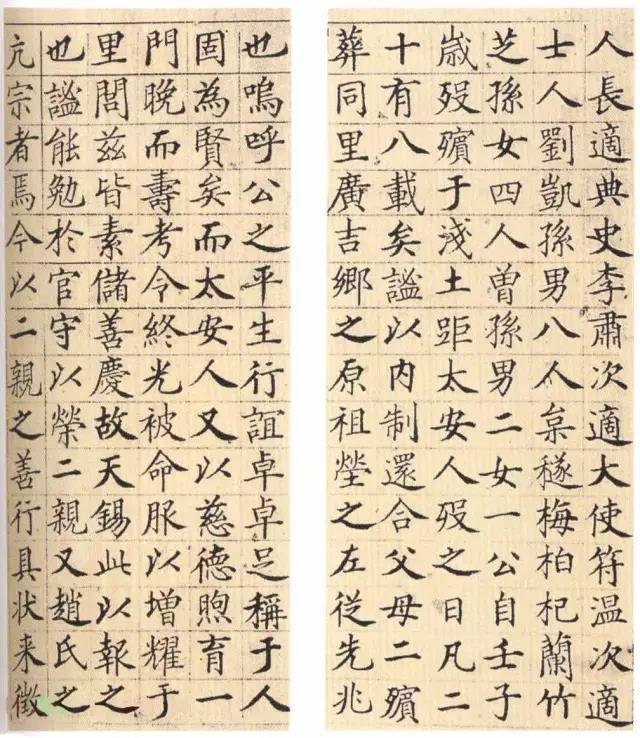 人長適典史李肅次適大使符温次適
士人劉凱孫男八人枲穟梅柏杞蘭竹
芝孫女四人曾孫男二女一公自壬子
歲歿殯于淺土距太安人歿之日凡二
十有八載矣謐以内制還合父母二殯
葬同里廣吉鄉之原祖塋之左從先兆
也嗚呼公之平生行誼卓卓足稱于人
固為賢矣而太安人又以慈德煦育一
門晚而壽考令終光被命服以增耀于
里閭兹皆素儲善慶故天錫此以報之
也謐能勉於官守以榮二親又趙氏之
亢宗者焉今以二親之善行具狀来徵